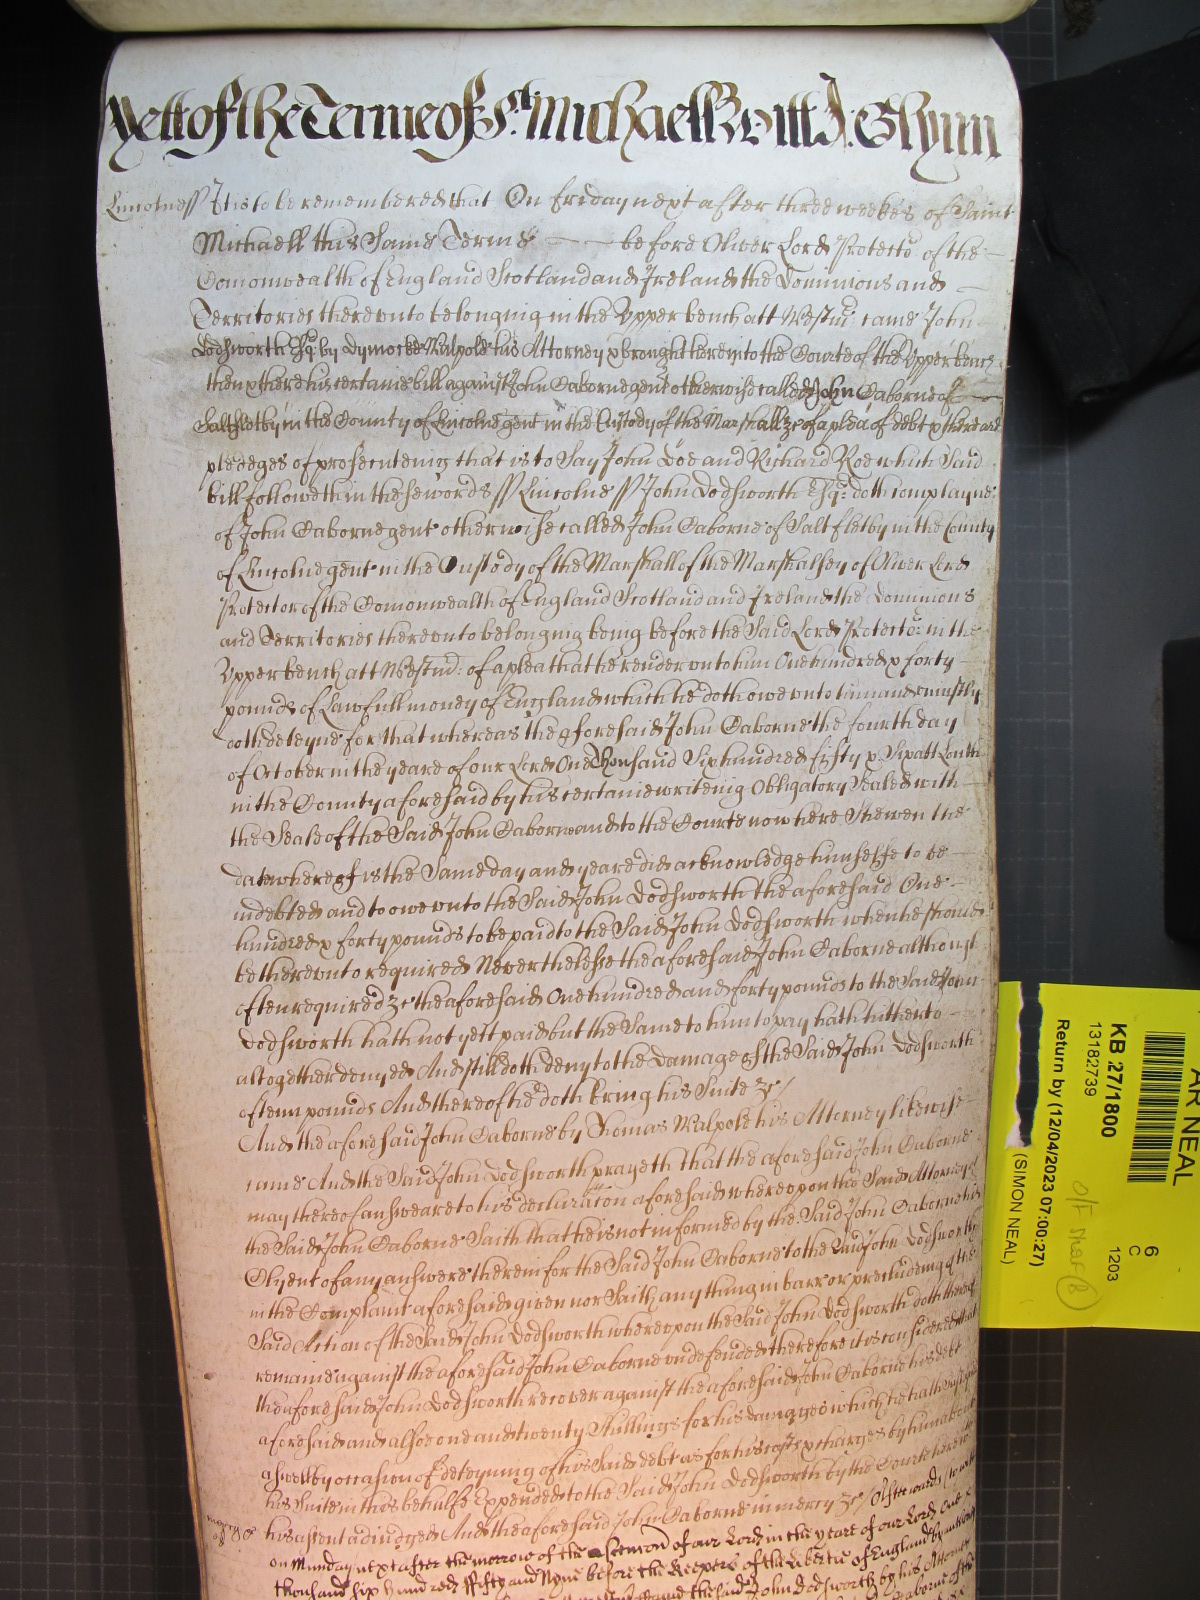 Yett of the Terme of St. Michaell Witt J. Glynn
Lincolne ss It is to be remembered that On friday next after three weekes of Saint
Michaell this Same Terme before Oliver Lord Protector of the
Comonwealth of England Scotland and Ireland the Dominions and
Territories thereunto belonging in the Upper bench att Westmr. came John
Dodsworth Esqr. by Dymocke Walpole his Attorney & brought here into the Courte of the Upper bench
then & there his certaine bill against John Oaborne gent otherwise called John Oaborne of
Saltfletby in the County of Lincolne gent in the Custody of the Marshall &c of a plea of debt & there are
pledeges of prosecuteing that is to Say John Doe and Richard Roe which Said
bill followeth in these words ss Lincolne ss John Dodsworth Esqr: doth complayne
of John Oaborne gent otherwise called John Oaborne of Saltfletby in the County
of Lincolne gent in the Custody of the Marshall of the Marshalsey of Oliver Lord
Protector of the Comonwealth of England Scotland and Ireland the Dominions
and Territories thereunto belonging being before the Said Lord Protector in the
Upper bench att Westmr: of a plea that he render unto him One hundred & forty
pounds of Lawfull money of England which he doth owe unto him and uniustly
doth deteyne for that whereas the aforesaid John Oaborne the fourth day
of October in the yeare of our Lord One Thousand Six hundred fifty & Six att Louth
in the County aforesaid by his certaine writeing Obligatory Sealed with
the Seale of the Said John Oaborne and to the Courte now here Shewen the
date whereof is the Same day and yeare did acknowledge himselfe to be
indebted and to owe unto the Said John Dodsworth the aforesaid One
hundred & forty pounds to be paid to the Said John Dodsworth when he should
be thereunto required Neverthelesse the aforesaid John Oaborne although
often required &c the aforesaid One hundred and forty pounds to the Said John
Dodsworth hath not yett paid but the Same to him to pay hath hitherto
altogether denyed And still doth deny to the Damage of the Said John Dodsworth
of tenn pounds And thereof he doth bring his Suite &c /
And the aforesaid John Oaborne by Thomas Walpole his Attorney likewise
came And the Said John Dodsworth prayeth that the aforesaid John Oaborne
may thereof answeare to his declaracon aforesaid whereupon the Said Attorney of
the Said John Oaborne Saith that he is not informed by the Said John Oaborne his
Clyent of any answere therein for the Said John Oaborne to the Said John Dodsworth
in the Complaint aforesaid given nor Saith any thing in barr or precludeing of the
Said Action of the Said John Dodsworth whereupon the Said John Dodsworth doth thereof
remaine against the aforesaid John Oaborne undefended therefore it is considered that
the aforesaid John Dodsworth recover against the aforesaid John Oaborne his debt
aforesaid and alsoe one and twenty Shillings for his damages which he hath Susteyned
aswell by occasion of deteyning of his Said debt as for his costs & charges by him about
his Suite in this behalfe Expended to the Said John Dodsworth by the Courte here with
his assent adiudged And the aforesaid John Oaborne in mercy &c / Afterwards to witt
on Munday next after the morrow of the Ascencon of our Lord in the yeare of our Lord One
thousand six hundred ffifty and Nyne before the Keepers of the Libertie of England by
the Said John Dodsworth by his Attorney
Oaborne of the
AR NEAL
KB 27/1800
13182739
Return by (12/04/2023 07:00:27)
(SIMON NEAL)
6
C
1203